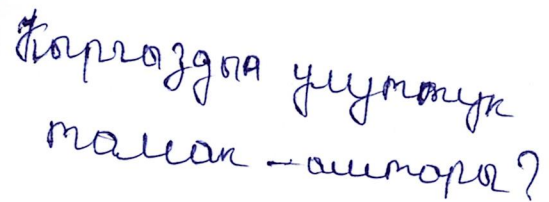 Кыргыздын улуттук
тамак - аштары?